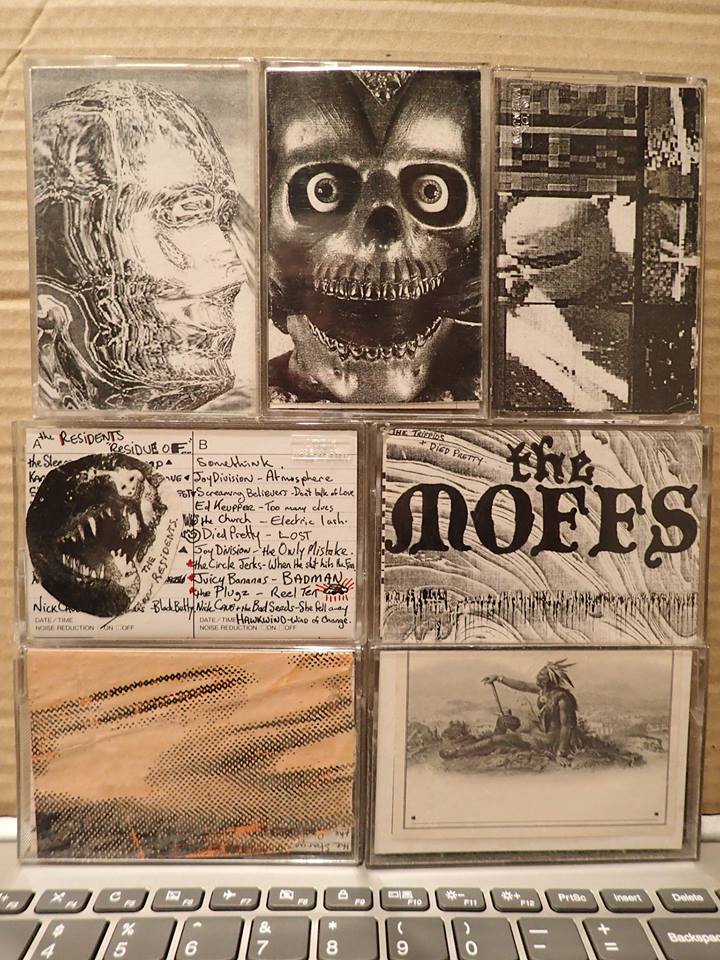 A the RESIDENTS
RESIDUE OF
B
the
Somethink.
Joy Division - Atmosphere
Screaming Believers - Don't talk of Love
Ed Keupper - Too many clues
the Church - Electric lash.
Died Pretty - LOST
Joy Division - the Only Mistake.
the Circle Jerks - When the shit hits the Fan
Juicy Bananas - BADMAN
the Plugz - Reel Ten
THE RESIDENTS.
Black Betty
Nick Cave + the Bad Seeds - She fell away
HAWKWIND - Wind of Change.
DATE / TIME
NOISE REDUCTION ON OFF
DATE / TIME
NOISE REDUCTION ON OFF
THE TRIFFIDS
+ DIED PRETTY
the
MOFFS
F8
F9
F10
F11
F12
PrtSc
Insert
Delete
F4
F5
F6
F7
$ 4
% 5
^ 6
& 7
* 8
( 9
) 0
_ -
+ =
Backspace